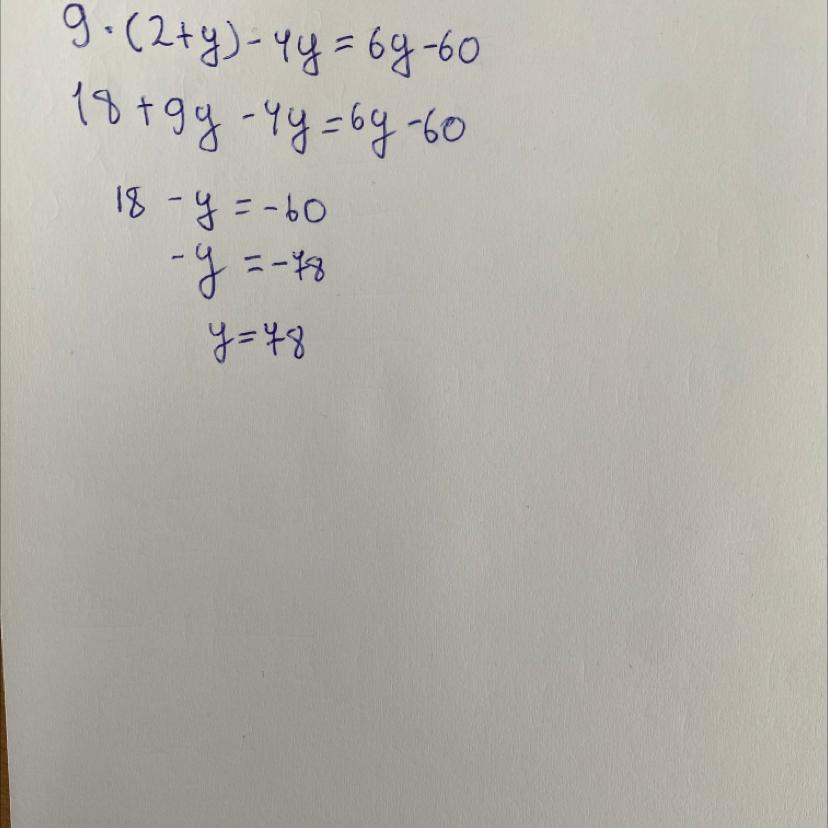 9·(2+y)-4y=6y-60
18+9y-4y=6y-60
18-y=-60
-y=-78
y=78